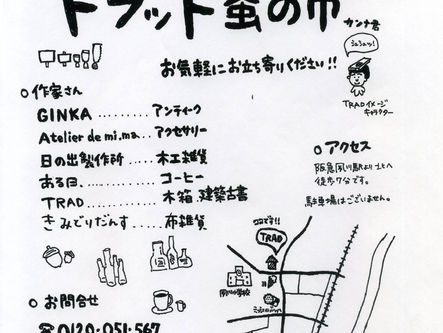 トラット蚤の市
カンナ君
お気軽にお立ち寄りください!!
TRADイメージ
キャラクター
○作家さん
GINKA……アンティーク
Atelier de mi.ma…アクセサリー
日の出製作所……木工雑貨
ある日.………コーヒー
TRAD…………木箱.建築古書
きみどりだんす……布雑貨
○アクセス
阪急夙川駅より北へ
徒歩7分です。
駐車場はございません。
ココです!!
TRAD
夙川小学校
○お問合せ
☎0120-051-567